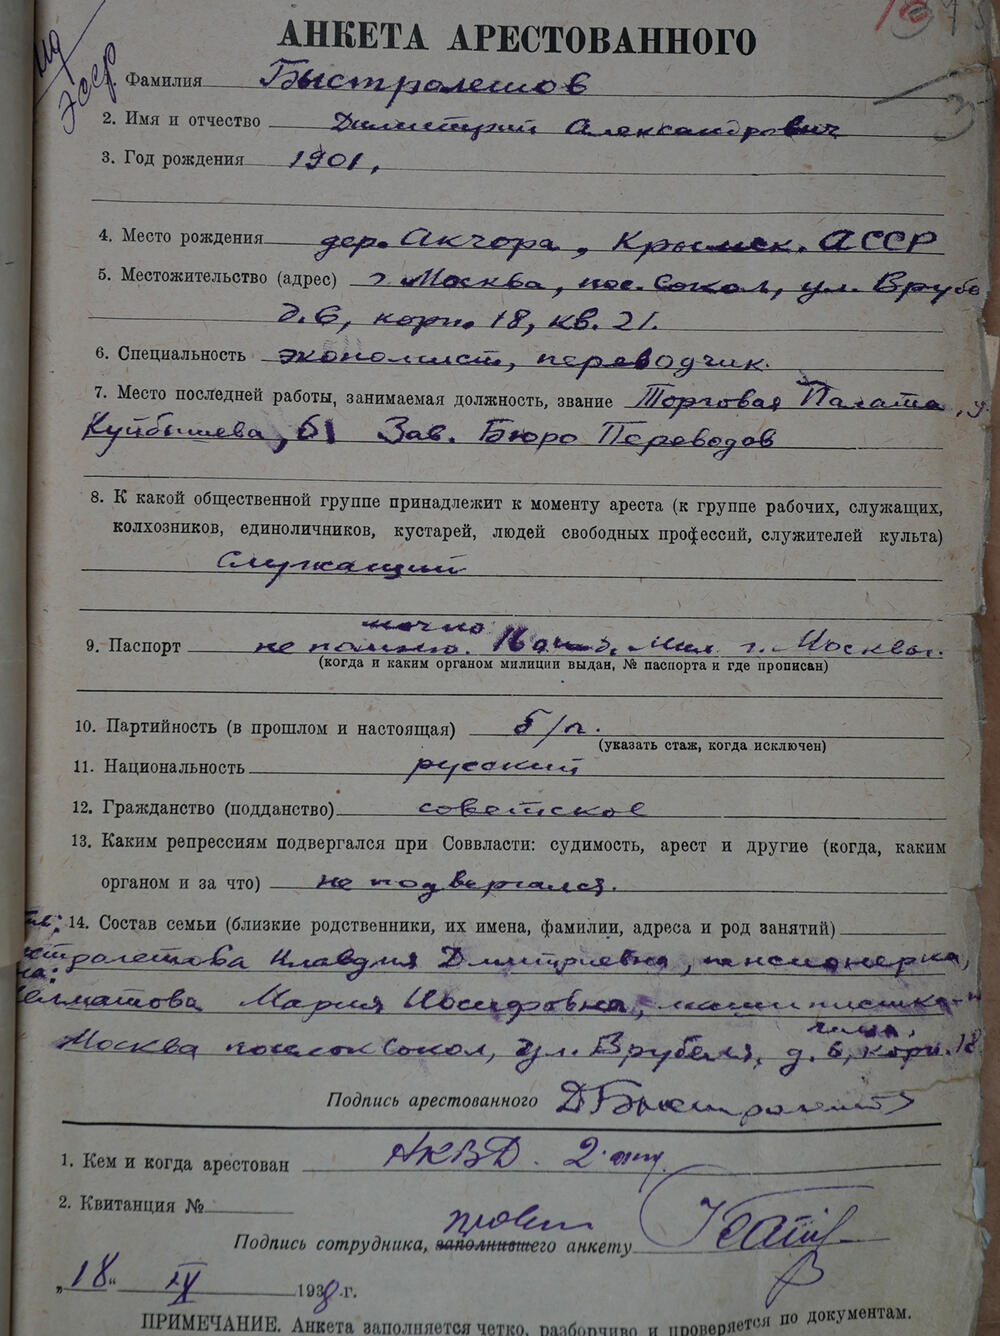 АНКЕТА АРЕСТОВАННОГО
1. Фамилия Быстролетов
2. Имя и отчество Димитрий Александрович
3. Год рождения 1901,
4. Место рождения дер. Акчора, Крымск. АССР
5. Местожительство (адрес) г. Москва, пос. Сокол, ул. Врубе
д. 6, корп. 18, кв. 21.
6. Специальность экономист, переводчик.
7. Место последней работы, занимаемая должность, звание Торговая Палата, у.
Куйбышева, 61 Зав. Бюро Переводов
8. К какой общественной группе принадлежит к моменту ареста (к группе рабочих, служащих,
колхозников, единоличников, кустарей, людей свободных профессий, служителей культа)
Служащий
точно
9. Паспорт не помню. 16 Мил. г. Москвы.
(когда и каким органом милиции выдан, № паспорта и где прописан)
10. Партийность (в прошлом и настоящая) б/п.
(указать стаж, когда исключен)
11. Национальность русский
12. Гражданство (подданство) советское
13. Каким репрессиям подвергался при Соввласти: судимость, арест и другие (когда, каким
органом и за что) не подвергался.
14. Состав семьи (близкие родственники, их имена, фамилии, адреса и род занятий)
стролетова Клавдия Дмитриевна, пенсионерка,
елматова Мария Иосифовна, машинистка
Москва поселок Сокол, ул. Врубеля, д. 6, корп. 18
Подпись арестованного ДБыстролетов
1. Кем и когда арестован НКВД. 2
2. Квитанция №
Подпись сотрудника, заполнившего анкету
„18“ IX 1938 г.
ПРИМЕЧАНИЕ. Анкета заполняется четко, разборчиво и проверяется по документам.